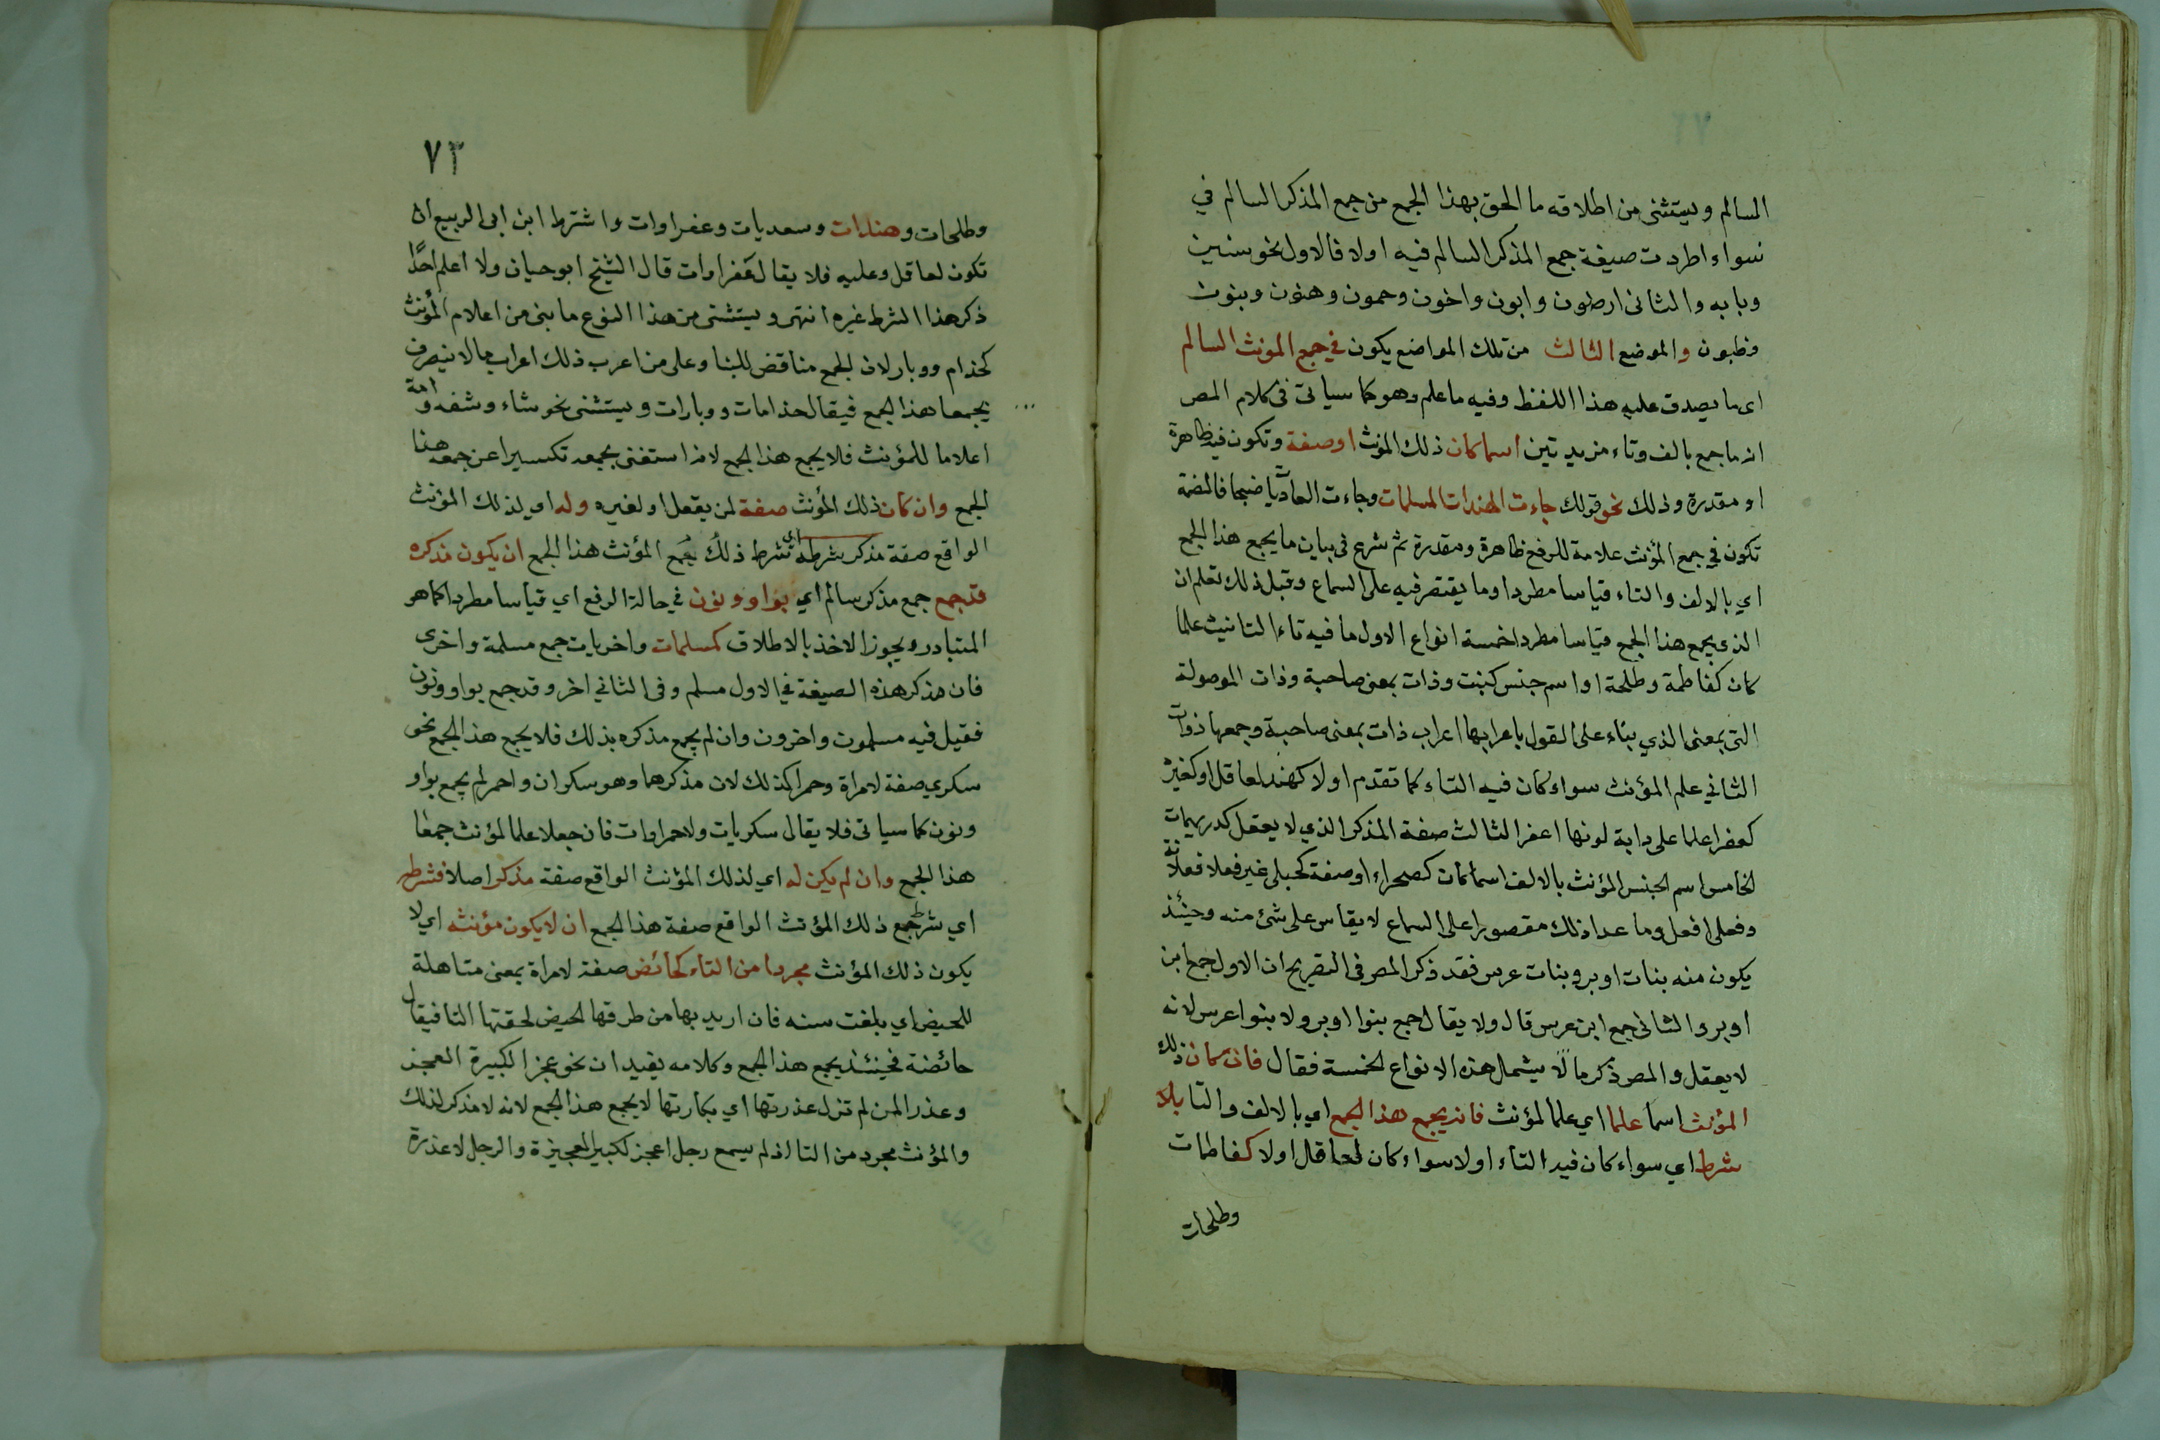 السالم ويستثنى من اطلاقه ما الحق بهذا الجمع من جمع المذكر السالم في
سواء اطردت صيغة جمع المذكر السالم فيه اولا فالاول نحو سنين
وبابه والثانى ارضون وابون واخون وحمون وهنون وبنون
وظبون والموضع الثالث من تلك المواضع يكون في جمع المونث السالم
اى ما يصدق عليه هذا اللفظ وفيه ما علم وهو كما سياتى فى كلام المص
انه ما جمع بالف وتاء مزيدتين اسما كان ذلك المؤنث او صفة وتكون فيه ظاهرة
او مقدرة وذلك نحو قولك جاءت الهندات المسلمات وجاءت العاديات ضبحا فالضمة
تكون في جمع المؤنث علامة للرفع ظاهرة ومقدرة ثم شرع فى بيان ما يجمع هذا الجمع
اي بالالف والتاء قياسا مطردا وما يقتصر فيه على السماع وقبل ذلك تعلم ان
الذى يجمع هذا الجمع قياسا مطردا خمسة انواع الاول ما فيه تاء التانيث علما
كان كفاطمة وطلحة او اسم جنس كبنت وذات بمعنى صاحبة وذات الموصولة
التى بمعنى الذي بناء على القول باعرابها اعراب ذات بمعنى صاحبة وجمعها ذوات
الثاني علم المؤنث سواء كان فيه التاء كما تقدم اولا كهند لعاقل او لغيره
كعفرا علما على دابة لونها اعفر الثالث صفة المذكر الذي لا يعقل كدريهمات
الخامس اسم الجنس المؤنث بالالف اسما كان كصحراء او صفة كحبلى غير فعلا فعلانة
وفعلى افعل وما عدا ذلك مقصورا على السماع لا يقاس على شئ منه وحينئذ
يكون منه بنات اوبر وبنات عرس فقد ذكر المص فى التصريح ان الاول جمع ابن
اوبر والثانى جمع ابن عرس قال ولا يقال جمع بنوا اوبر ولا بنوا عرس لانه
لا يعقل والمص ذكر مالا يشمل هذه الانواع الخمسة فقال فان كان ذلك
المؤنث اسما علما اي علما لمؤنث فانه يجمع هذا الجمع اي بالالف والتا بلا
شرط اي سواء كان فيه التاء اولا سواء كان لعاقل اولا كفاطمات
وطلحات
٧٣
وطلحات وهندات وسعديات وعفراوات واشترط ابن ابى الربيع ان
تكون لعاقل وعليه فلا يقال عفراوات قال الشيخ ابو حيان ولا اعلم احدًا
ذكر هذا الشرط غيره انتهى ويستثنى من هذا النوع ما بنى من اعلام المؤنث
كحذام ووبار لان الجمع مناقض للبنا وعلى من اعرب ذلك اعراب مالا ينصرف
يجمعها هذا الجمع فيقال حذامات ووبارات ويستثنى نحو شاء وشفه وامة
اعلاما للمؤنث فلا يجمع هذا الجمع لانه استغنى بجمعه تكسيرا عن جمعه هذا
الجمع وان كان ذلك المؤنث صفة لمن يعقل او لغيره وله اي لذلك المؤنث
الواقع صفة مذكر شرطه اي شرط ذلك جمع المؤنث هذا الجمع ان يكون مذكره
قد جمع جمع مذكر سالم اي بواو ونون في حالة الرفع اي قياسا مطردا كما هو
المتبادر ويجوز الاخذ بالاطلاق كمسلمات واخريات جمع مسلمة واخرى
فان مذكر هذه الصيغة في الاول مسلم وفى الثاني اخر وقد جمع بواو ونون
فقيل فيه مسلمون واخرون وان لم يجمع مذكره بذلك فلا يجمع هذا الجمع نحو
سكرى صفة لامراة وحمرا كذلك لان مذكرهما وهو سكران واحمر لم يجمع بواو
ونون كما سياتى فلا يقال سكريات ولا حمراوات فان جعلا علما لمؤنث جمعا
هذا الجمع وان لم يكن له اي لذلك المؤنث الواقع صفة مذكر اصلا فشرطه
اي شرط جمع ذلك المؤنث الواقع صفة هذا الجمع ان لا يكون مؤنثه اي لا
يكون ذلك المؤنث مجردا من التاء كحائض صفة لامراة بمعنى متاهلة
للحيض اي بلغت سنه فان اريد بها من طرقها الحيض لحقتها التا فيقال
حائضة فحينئذ يجمع هذا الجمع وكلامه يفيد ان نحو عجز الكبيرة العجز
وعذرا لمن لم تزل عذرتها اي بكارتها لا يجمع هذا الجمع لانه لا مذكر لذلك
والمؤنث مجرد من التا اذ لم يسمع رجل اعجز لكبير العجيزة والرجل لا عذرة